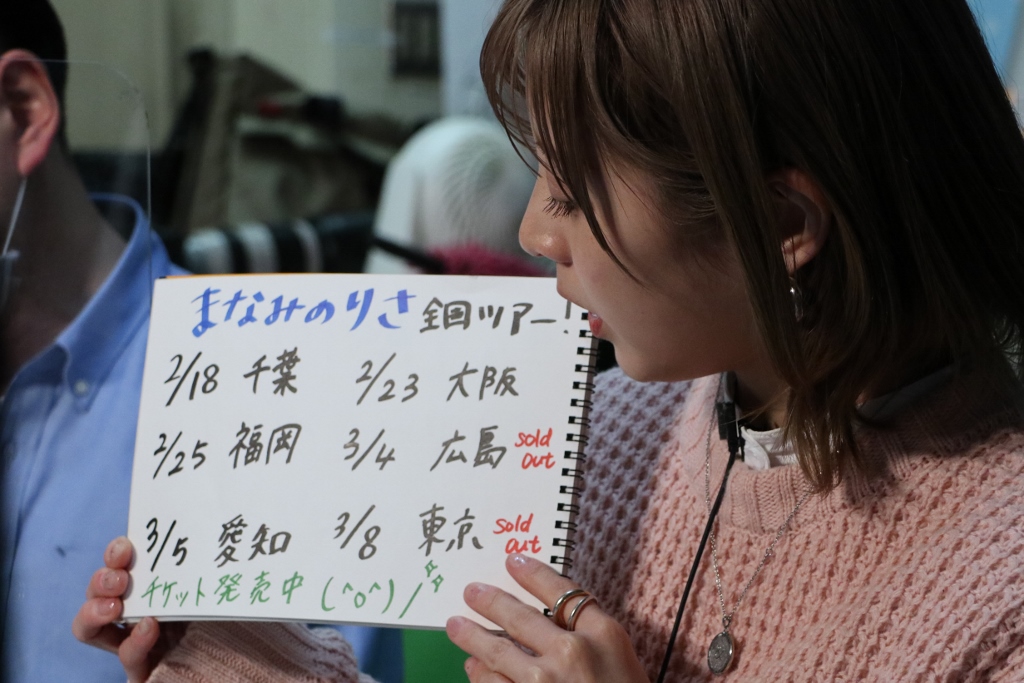 まなみのりさ 全国ツアー!
2/18 千葉 2/23 大阪
2/25 福岡 3/4 広島 sold out
3/5 愛知 3/8 東京 sold out
チケット発売中 (^o^)/